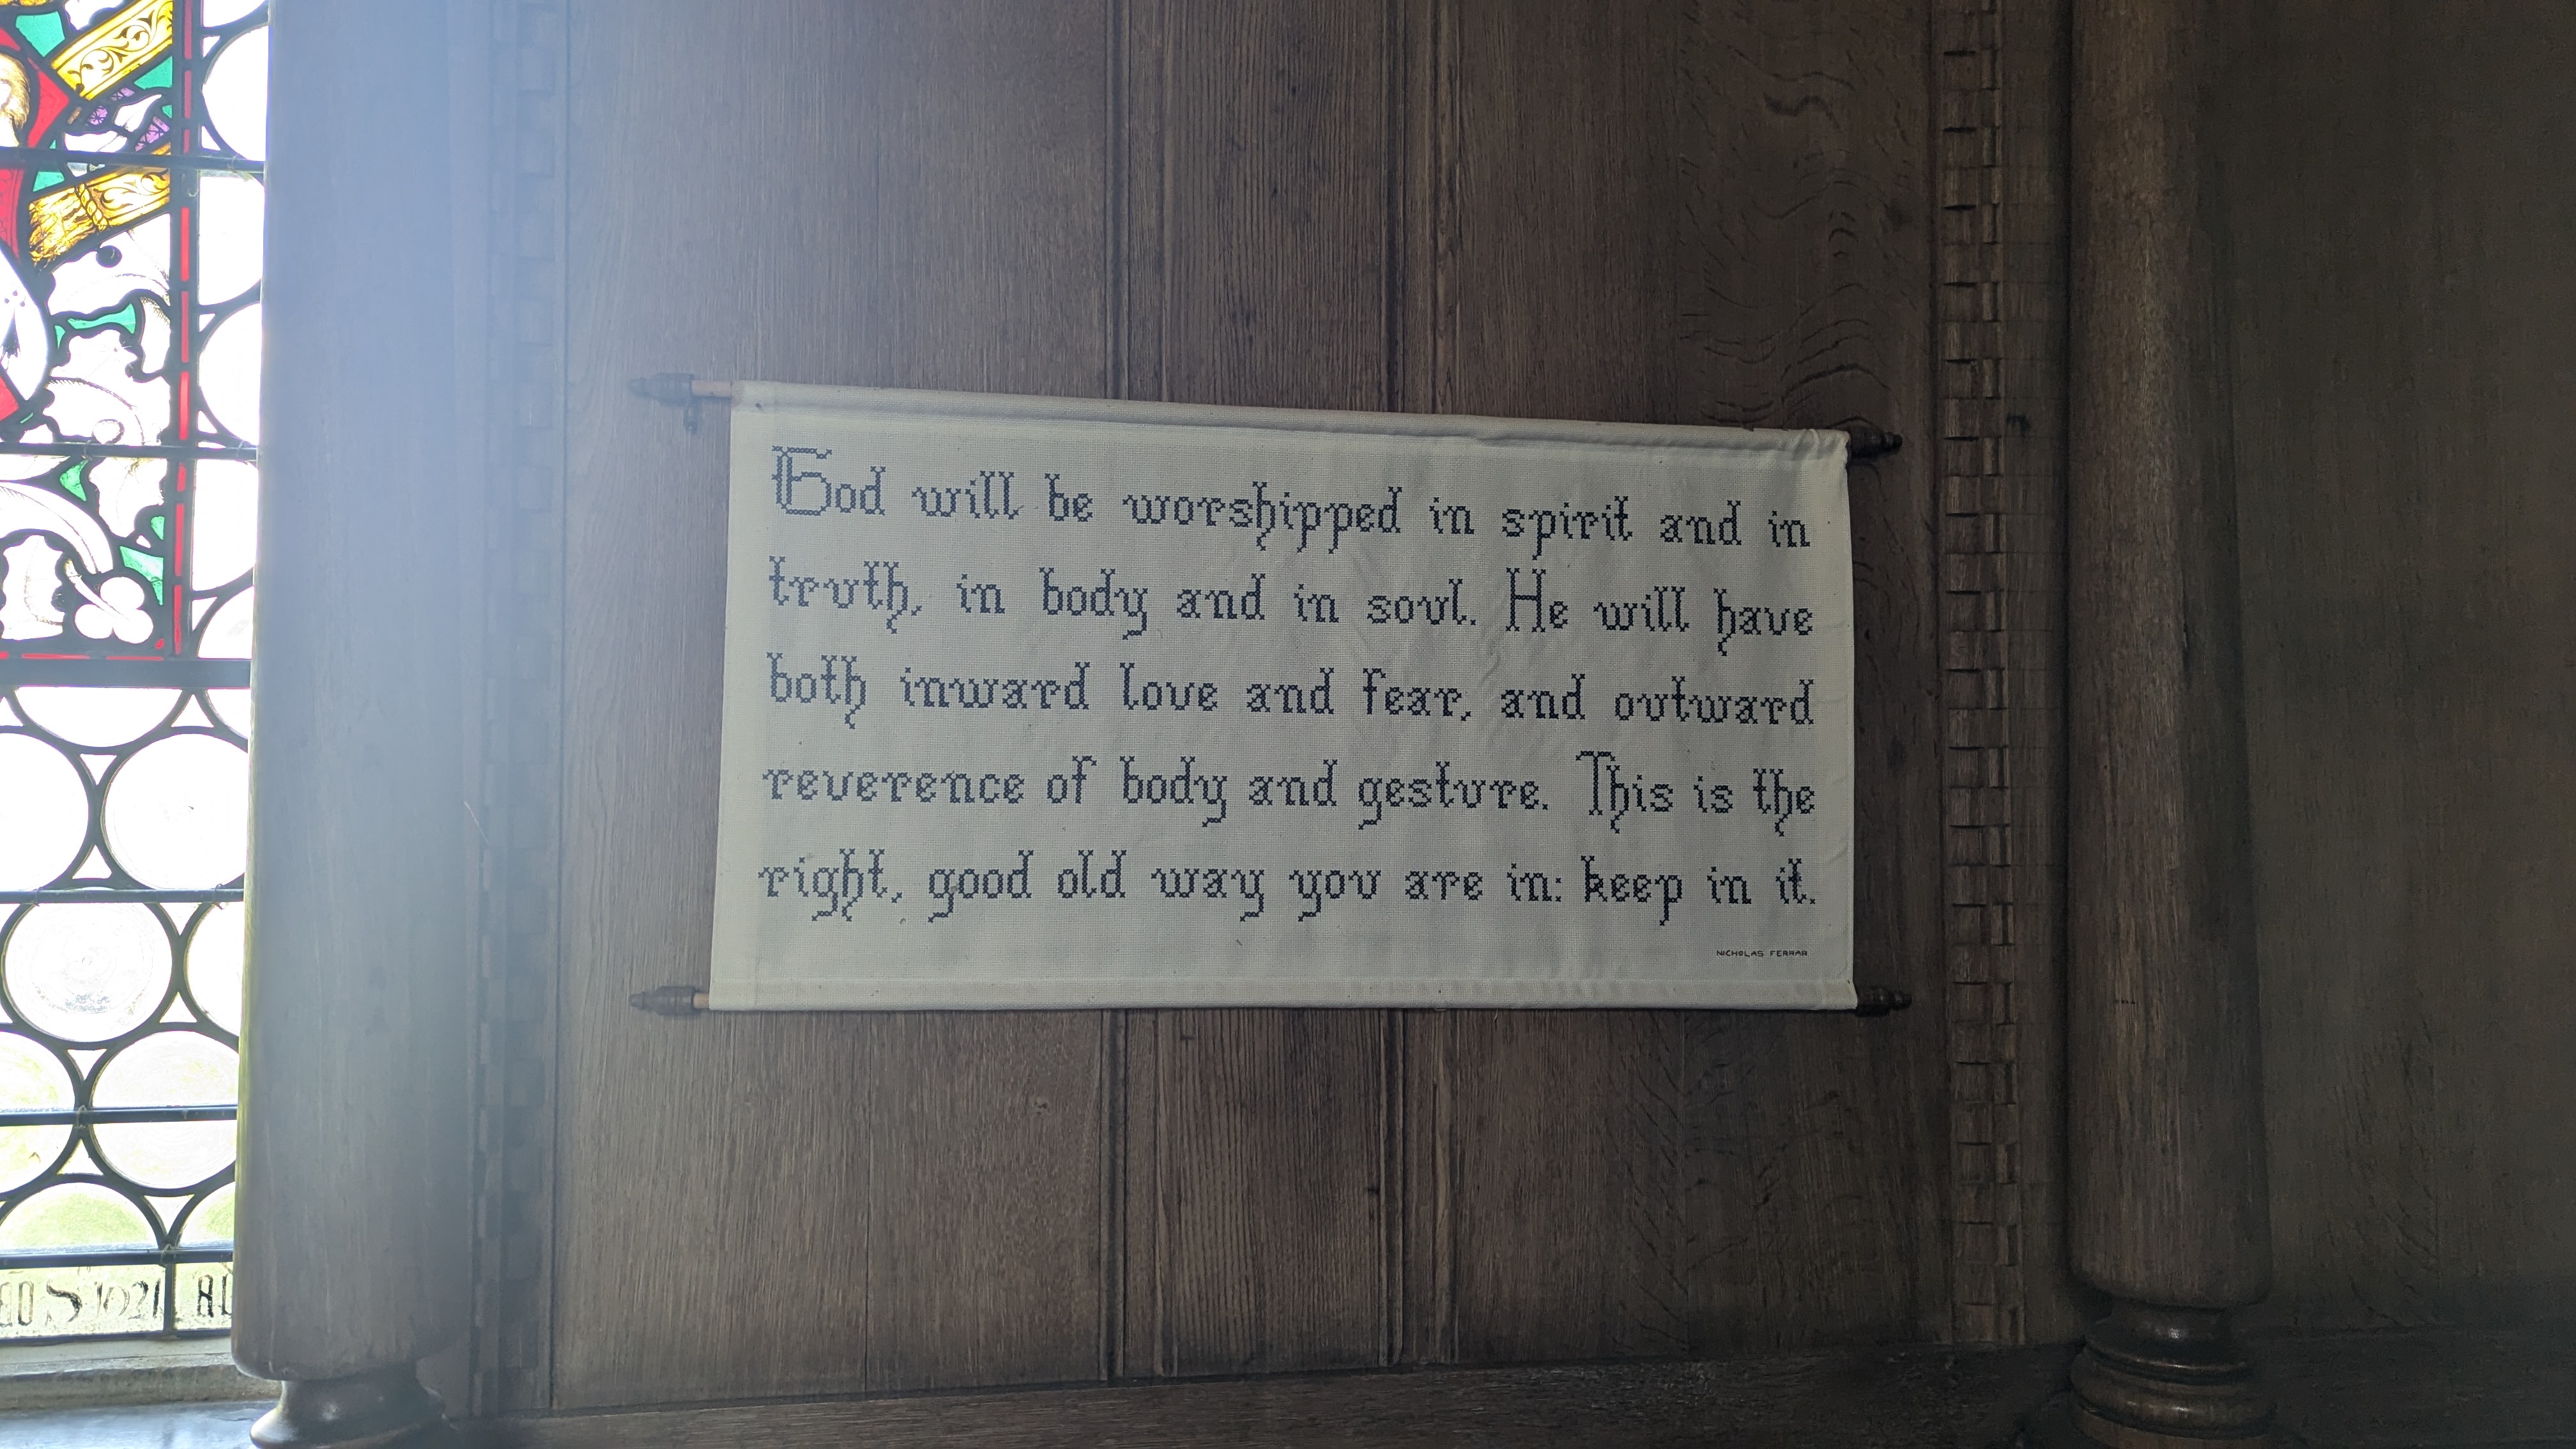 God will be worshipped in spirit and in
truth, in body and in soul. He will have
both inward love and fear, and outward
reverence of body and gesture. This is the
right, good old way you are in: keep in it.
NICHOLAS FERRAR